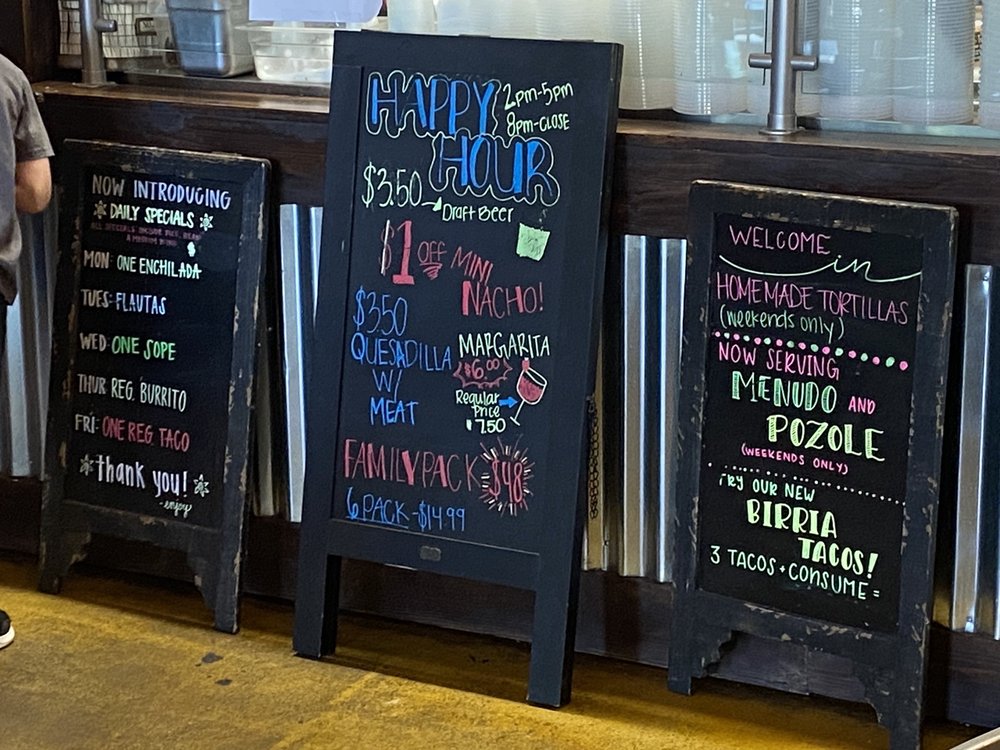 NOW INTRODUCING
DAILY SPECIALS
ALL SPECIALS INCLUDE RICE, BEANS
A MEDIUM DRINK
MON: ONE ENCHILADA
TUES: FLAUTAS
WED: ONE SOPE
THUR REG. BURRITO
FRI: ONE REG TACO
thank you!
-enjoy
HAPPY
HOUR
2pm-5pm
8pm-CLOSE
$3.50
Draft BEER
$1 OFF MINI
NACHO!
$3.50
QUESADILLA
W/
MEAT
MARGARITA
$6.00
Regular
Price
$7.50
FAMILY PACK $48
6 PACK-$14.99
WELCOME
in
HOMEMADE TORTILLAS
(weekends only)
NOW SERVING
MENUDO AND
POZOLE
(WEEKENDS ONLY)
TRY OUR NEW
BIRRIA
TACOS!
3 TACOS + CONSUME =